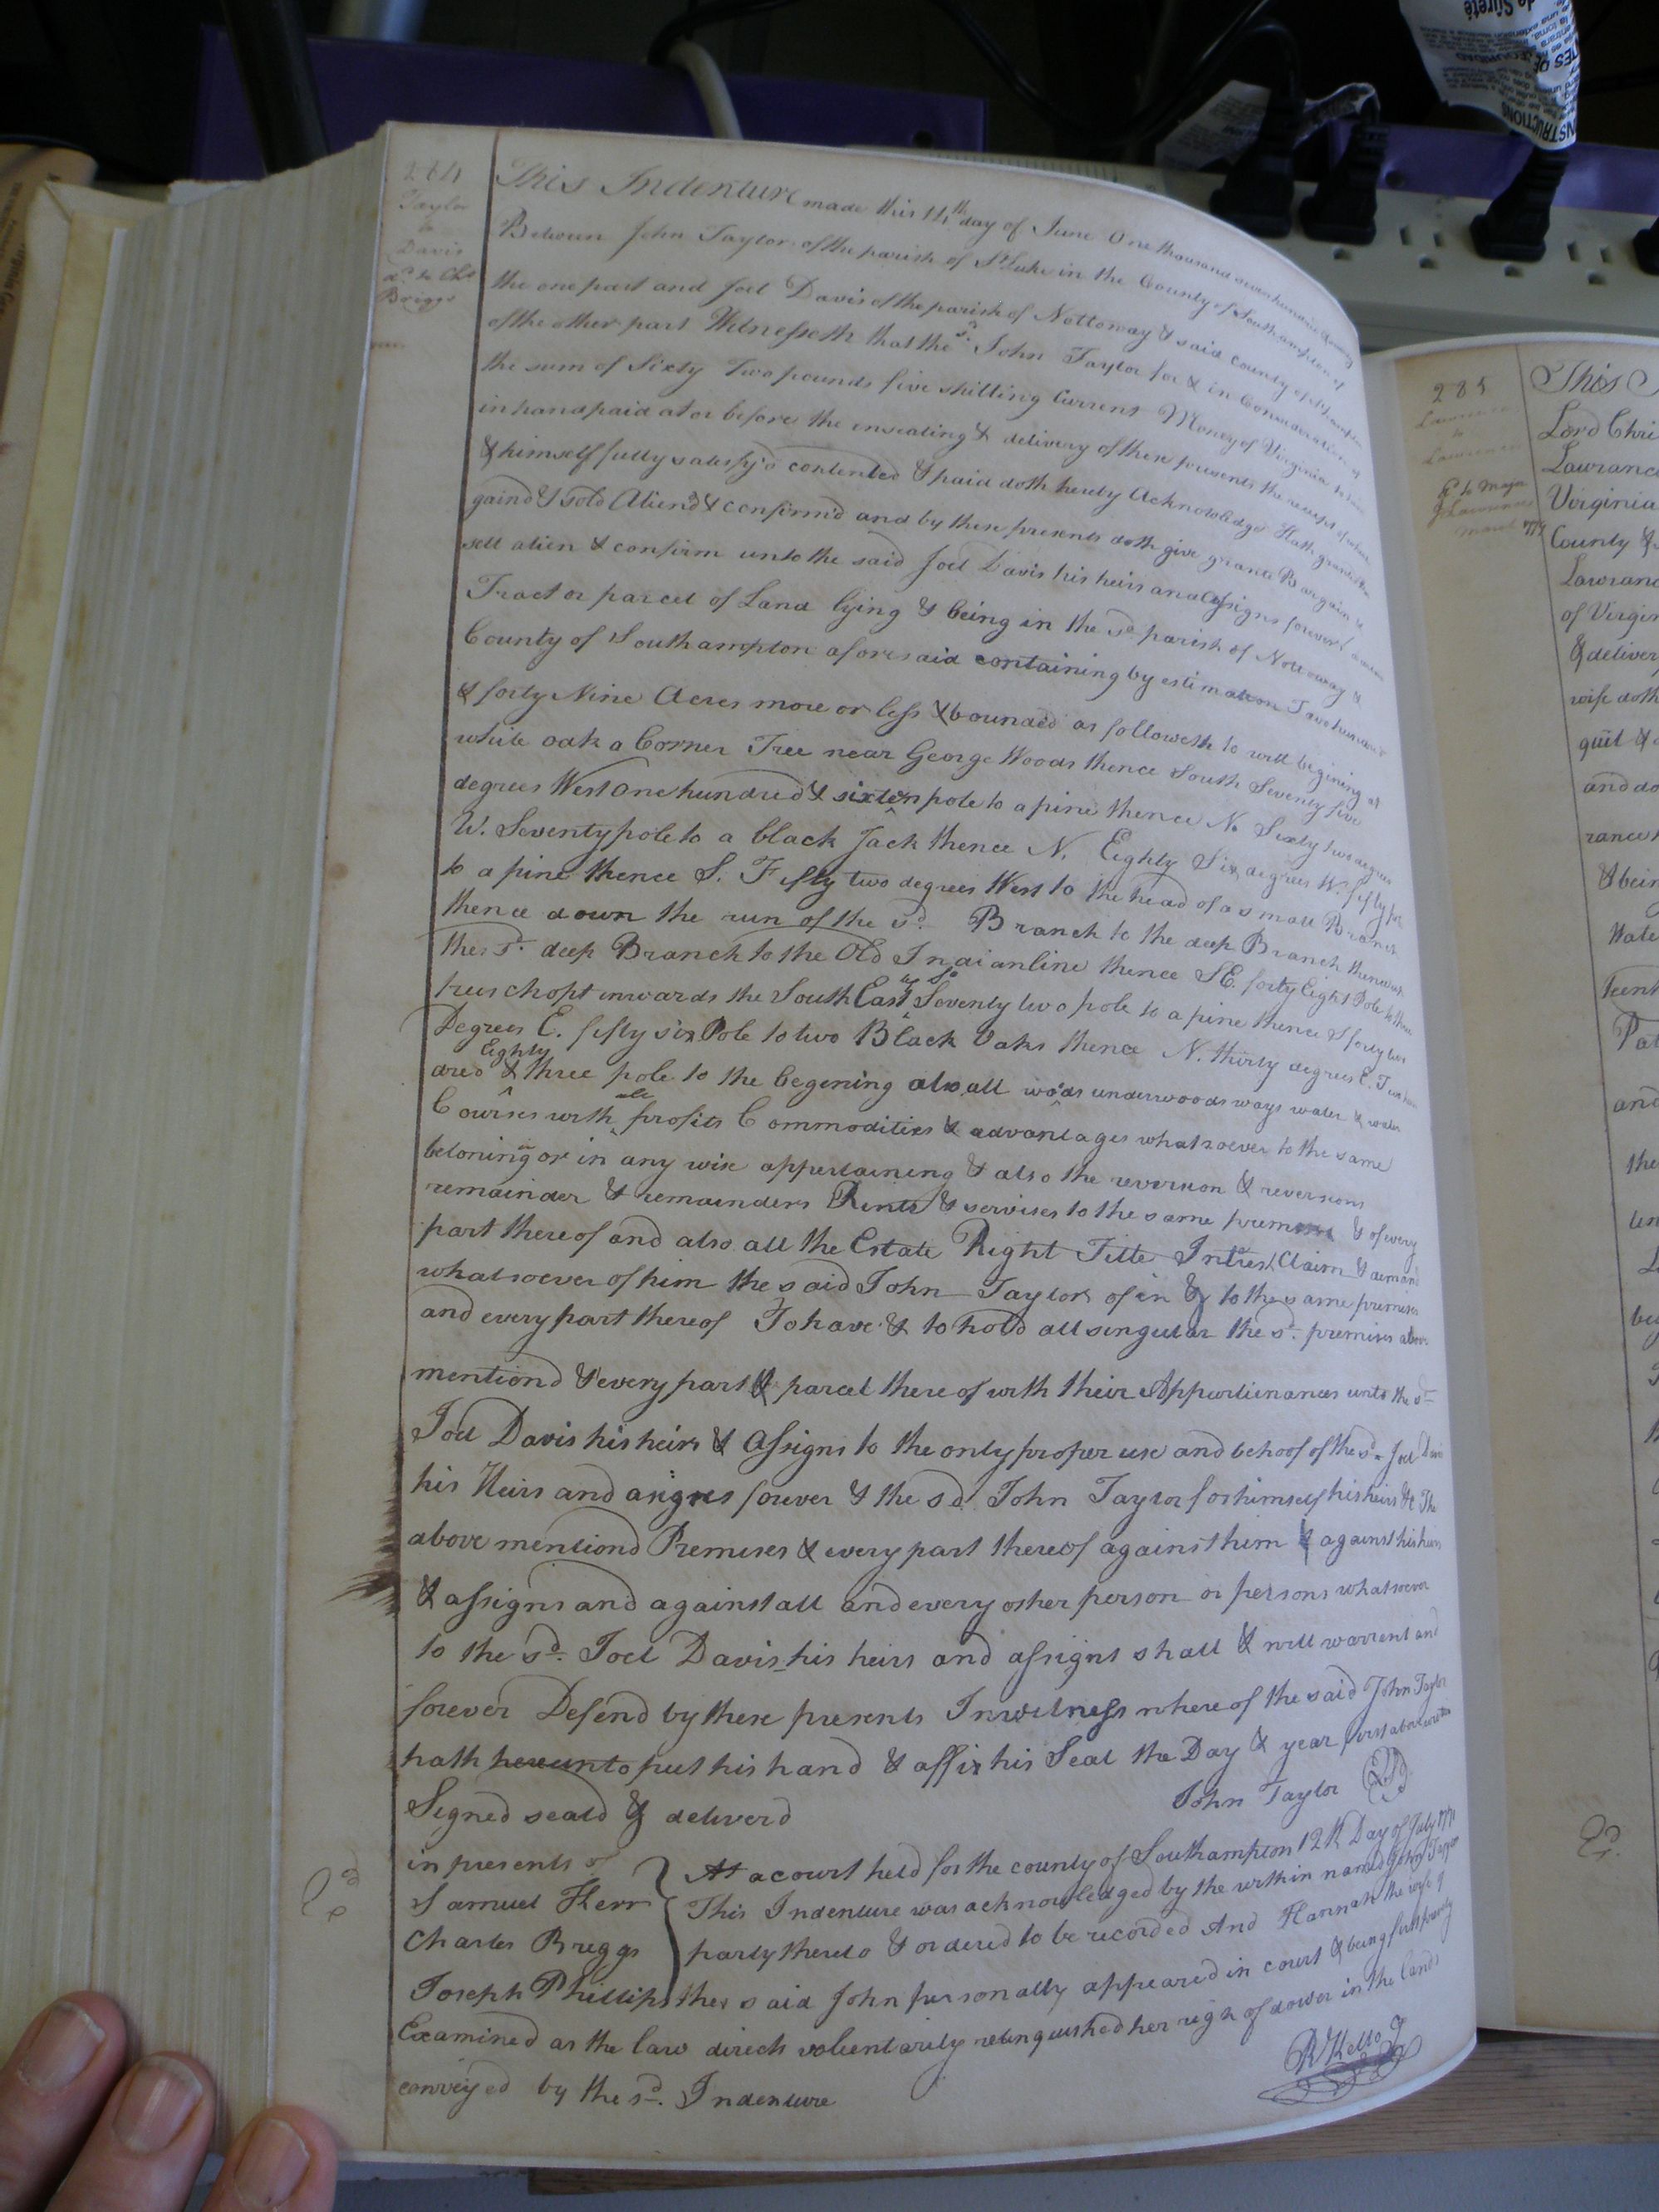 284
Taylor
to
Davis
dd. to Chs
Briggs
This Indenture made this 14th day of June One thousand seven hundred &
Between John Taylor of the parish of St Luke in the County of Southampton of
the one part and Joel Davis of the parish of Nottoway & said County of Southampton
of the other part Witnesseth that the sd. John Taylor for & in Consideration of
the sum of Sixty Two pounds five shilling Current Money of Virginia to him
in hand paid at or before the ensealing & delivery of these presents the receipt of whereof
& himself fully satisfy'd contented & paid doth hereby Acknowledge Hath granted Bar
gaind & Sold Aliend & confirmd and by these presents doth give grant Bargain &
sell alien & confirm unto the said Joel Davis his heirs and Assigns forever a certain
Tract or parcel of Land lying & being in the sd. parish of Nottoway &
County of Southampton aforesaid containing by estimation Two hundred
& forty Nine Acres more or less & bounded as followeth to will begining at
white oak a Corner Tree near George Woods thence South Seventy five
degrees West One hundred & sixteen pole to a pine thence No. Sixty two degrees
W. Seventy pole to a black Jack thence N. Eighty Six degrees W. fifty pole
to a pine thence S. Fifty two degrees West to the head of a small Branch
thence down the run of the sd. Branch to the deep Branch thence up
the sd. deep Branch to the Old Indian line thence SE. forty Eight Pole to three
trees chopt inwards the South East Seventy two pole to a pine thence S forty two
Degrees E. fifty six Pole to two Black Oaks thence N. thirty degrees E. Two hun
Eighty
dred & three pole to the begening also all woods underwoods ways water & water
all
Courses with profits Commodities & advantages whatsoever to the same
beloning or in any wise appertaining & also the reversion & reversions
remainder & remainders Rents & servises to the same premises & of every
part thereof and also all the Estate Right Title Intrest Claim & demand
whatsoever of him the said John Taylor of in & to the same premises
and every part thereof To have & to hold all singular the sd. premises above
mentiond & every part & parcel there of with their Appurtinances unto the sd
Joel Davis his heirs & Assigns to the only proper use and behoof of the sd. Joel Davis
his Heirs and asigns forever & the sd. John Taylor for himself his heirs &c The
above mentiond Premises & every part thereof against him & against his heirs
& assigns and against all and every other person or persons whatsoever
to the sd. Joel Davis his heirs and assigns shall & will warrent and
forever Defend by these presents In witness where of the said John Taylor
hath hereunto put his hand & affix his Seal the Day & year first above written
Signed seald & deliverd
John Taylor
in presents of
Samuel Kerr
Charles Briggs
Joseph Phillips
At a court held for the county of Southampton 12th Day of July
This Indenture was acknowledged by the within named John Taylor
party thereto & ordered to be recorded And Hannah the wife of
the said John personally appeared in court & being first privily
Examined as the law directs voluentarily relinquished her righ of dower in the lands
conveyed by the sd. Indenture
RKello
285
Lawrence
to
Lawrence
This
Lord Chri
Lawranc
Virginia
County &
Lawran
of Virgin
& deliver
wife doth
quit &
and do
rance
& bein
Nate
and
the